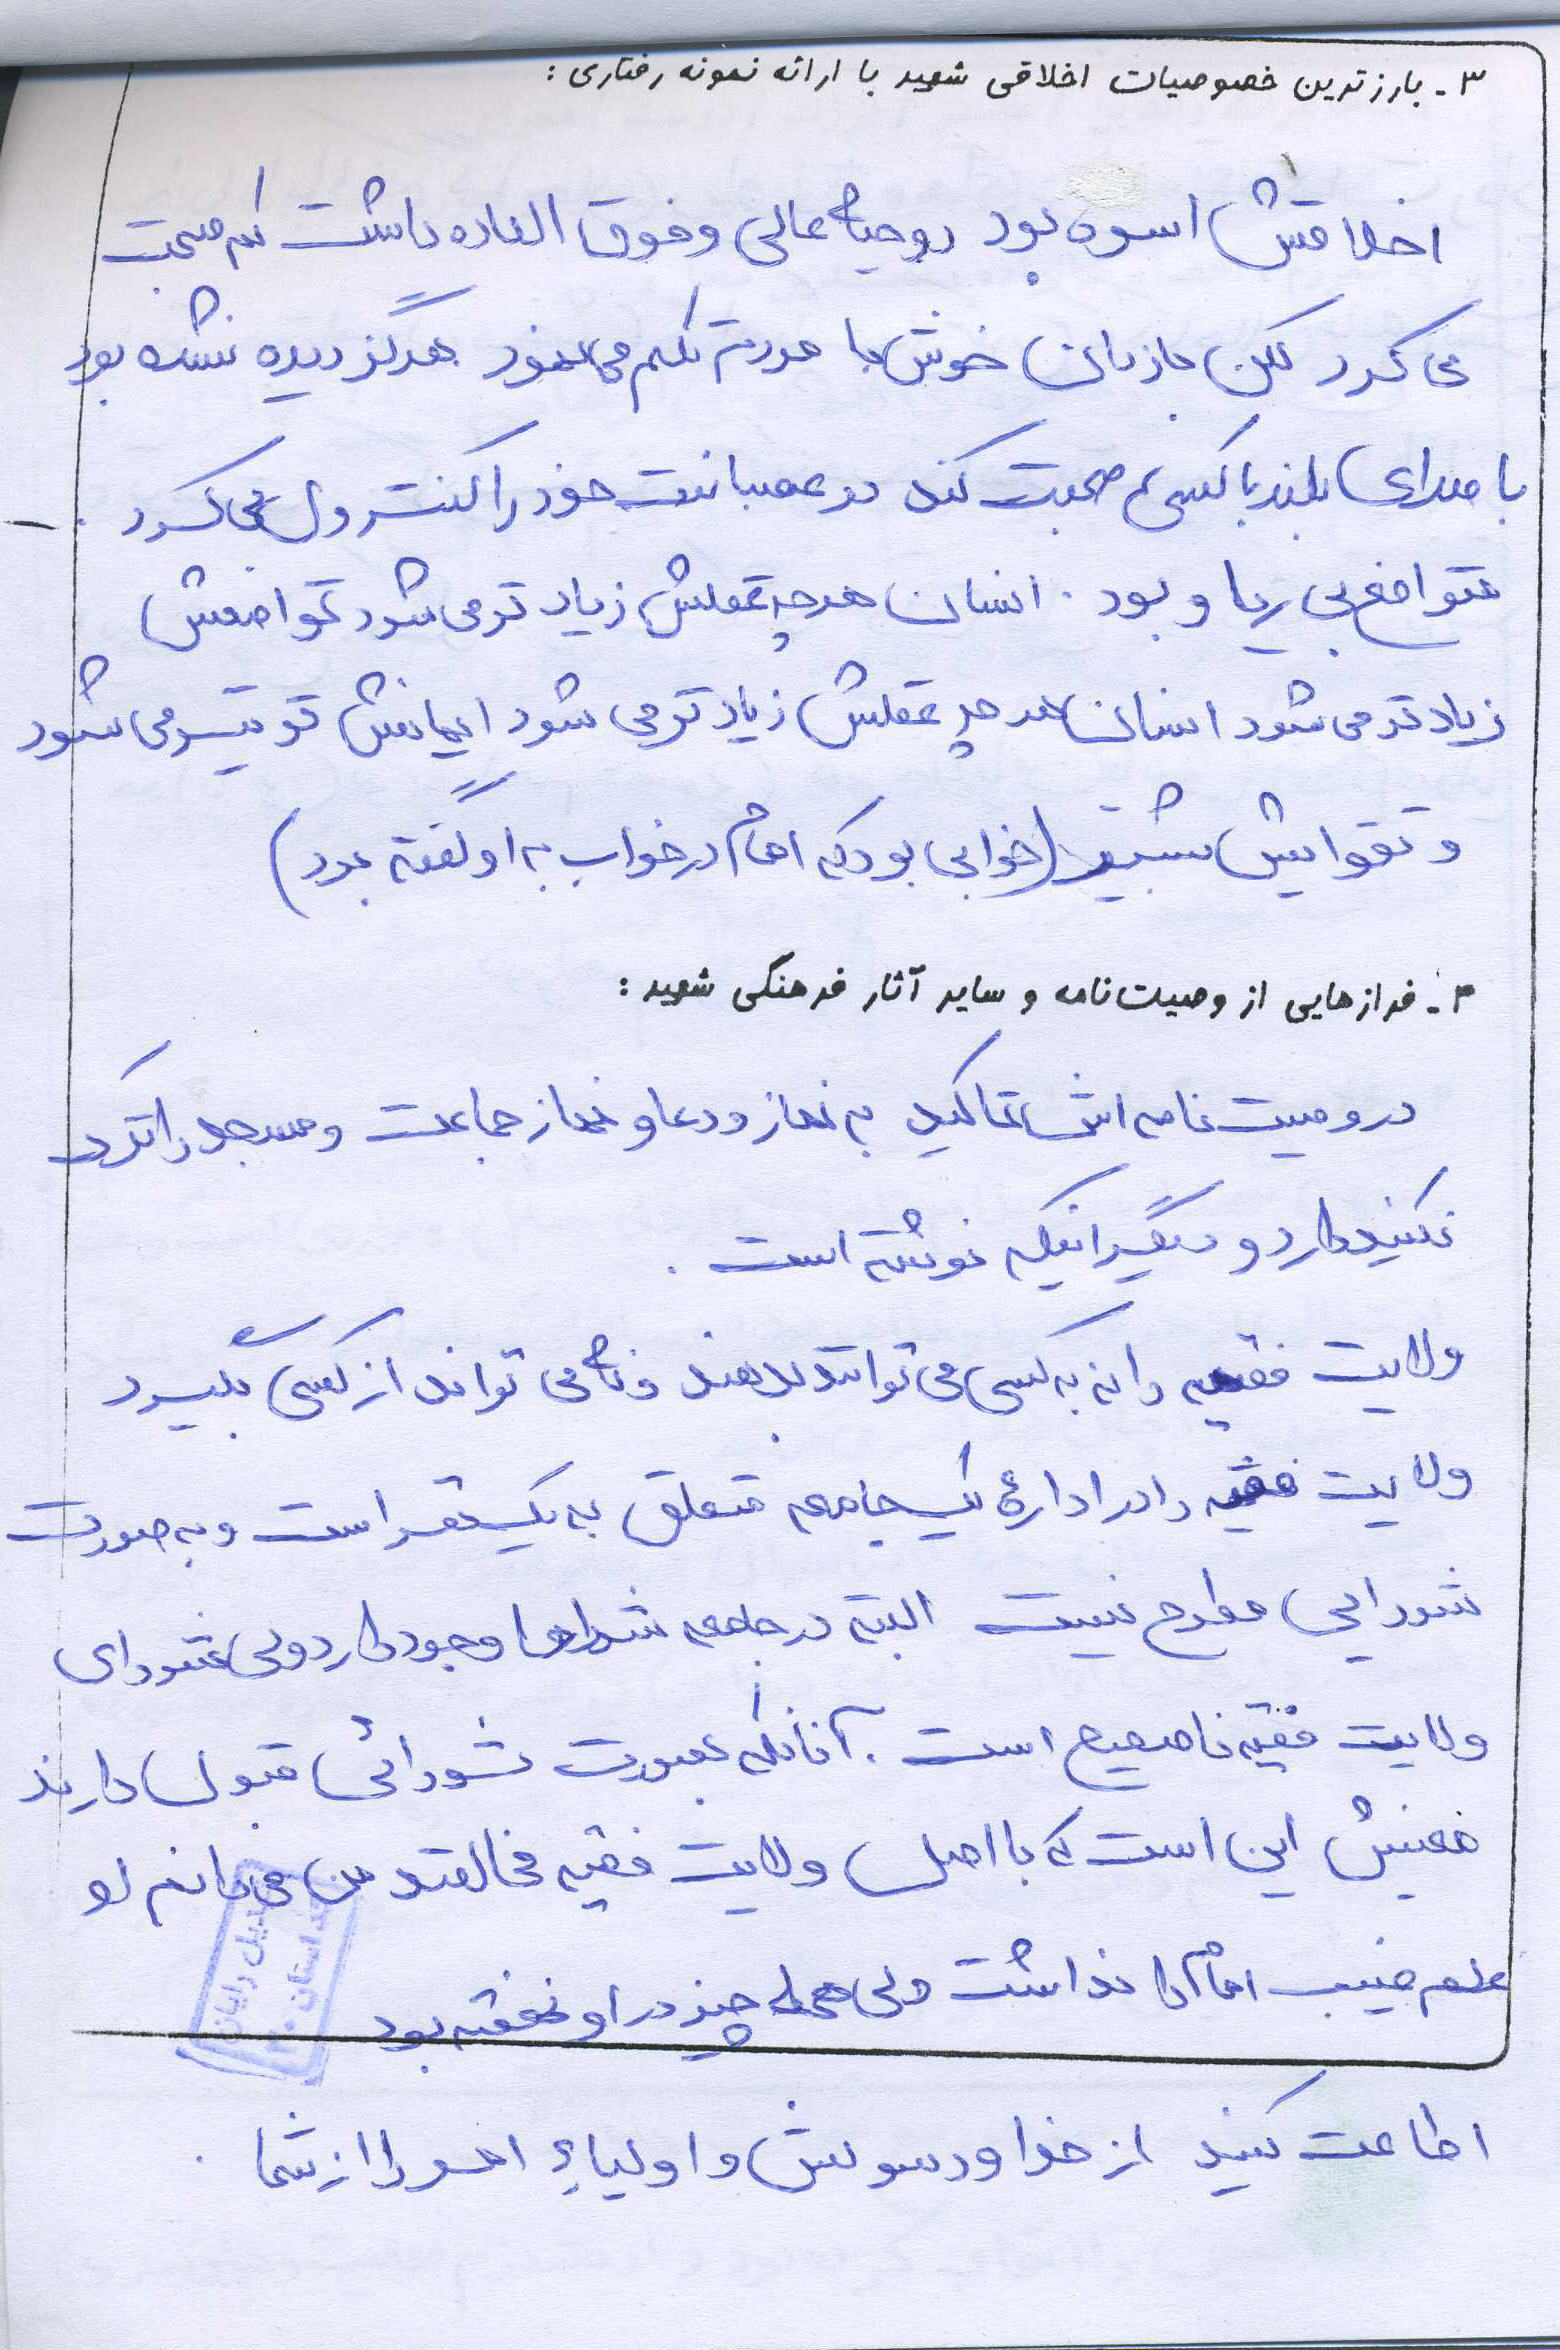 ۳- بارزترین خصوصیات اخلاقی شهید با ارائه نمونه رفتاری:
اخلاقش اسوه بود روحیه عالی و فوق العاده داشت کم صحبت
می کرد لکن با زبان خوش با مردم تکلم می نمود هرگز دیده نشده بود
با صدای بلند با کسی صحبت کند در عصبانیت خود را کنترول می کرد.
متواضع بی ریا و بود. انسان هر چه عقلش زیادتر می شود تواضعش
زیادتر می شود انسان هر چه عقلش زیادتر می شود ایمانش قویتر می شود
و تقوایش بیشتر (خوابی بود که امام در خواب به او گفته بود)
۴- فرازهایی از وصیت نامه و سایر آثار فرهنگی شهید:
در وصیت نامه اش تاکید به نماز و دعا و نماز جماعت و مسجد را ترک
نکنید دارد و دیگر اینکه نوشته است.
ولایت فقیه را نه به کسی می توانند بدهند و نه می توانند از کسی بگیرد
ولایت فقیه را در ادارۀ یک جامعه متعلق به یک نفر است و به صورت
شورایی مطرح نیست البته در جامعه شوراها وجود دارد ولی شورای
ولایت فقیه ناصحیح است. آنانکه بصورت شورائی قبول دارند
معنیش این است که با اصل ولایت فقیه مخالفند من می دانم او
علم غیب امام را نداشت ولی همه چیز در او نهفته بود
اطاعت کنید از خدا و رسولش و اولیاء امر را از شما.